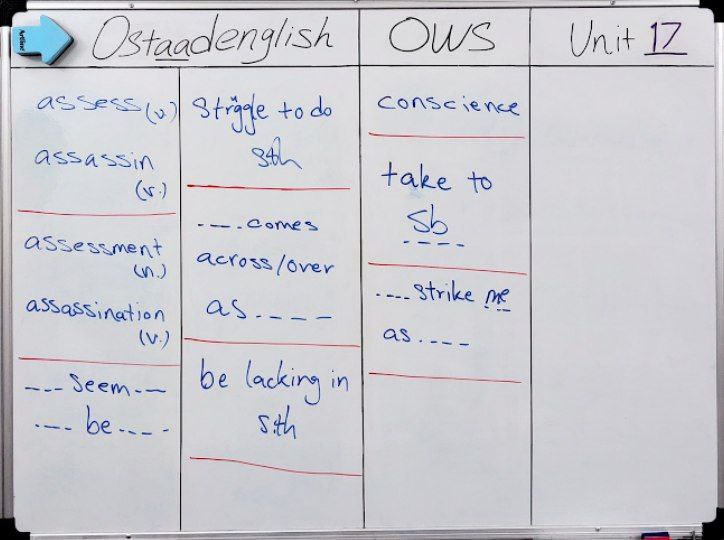 Ostaadenglish
OWS
Unit 17
assess (v.)
assassin
(v.)
assessment
(n.)
assassination
(v.)
---- seem ---
---- be ----
to do
sth
---- comes
across/over
as ----
be lacking in
s.th
conscience
take to
sb
----
---- strike me
as ----